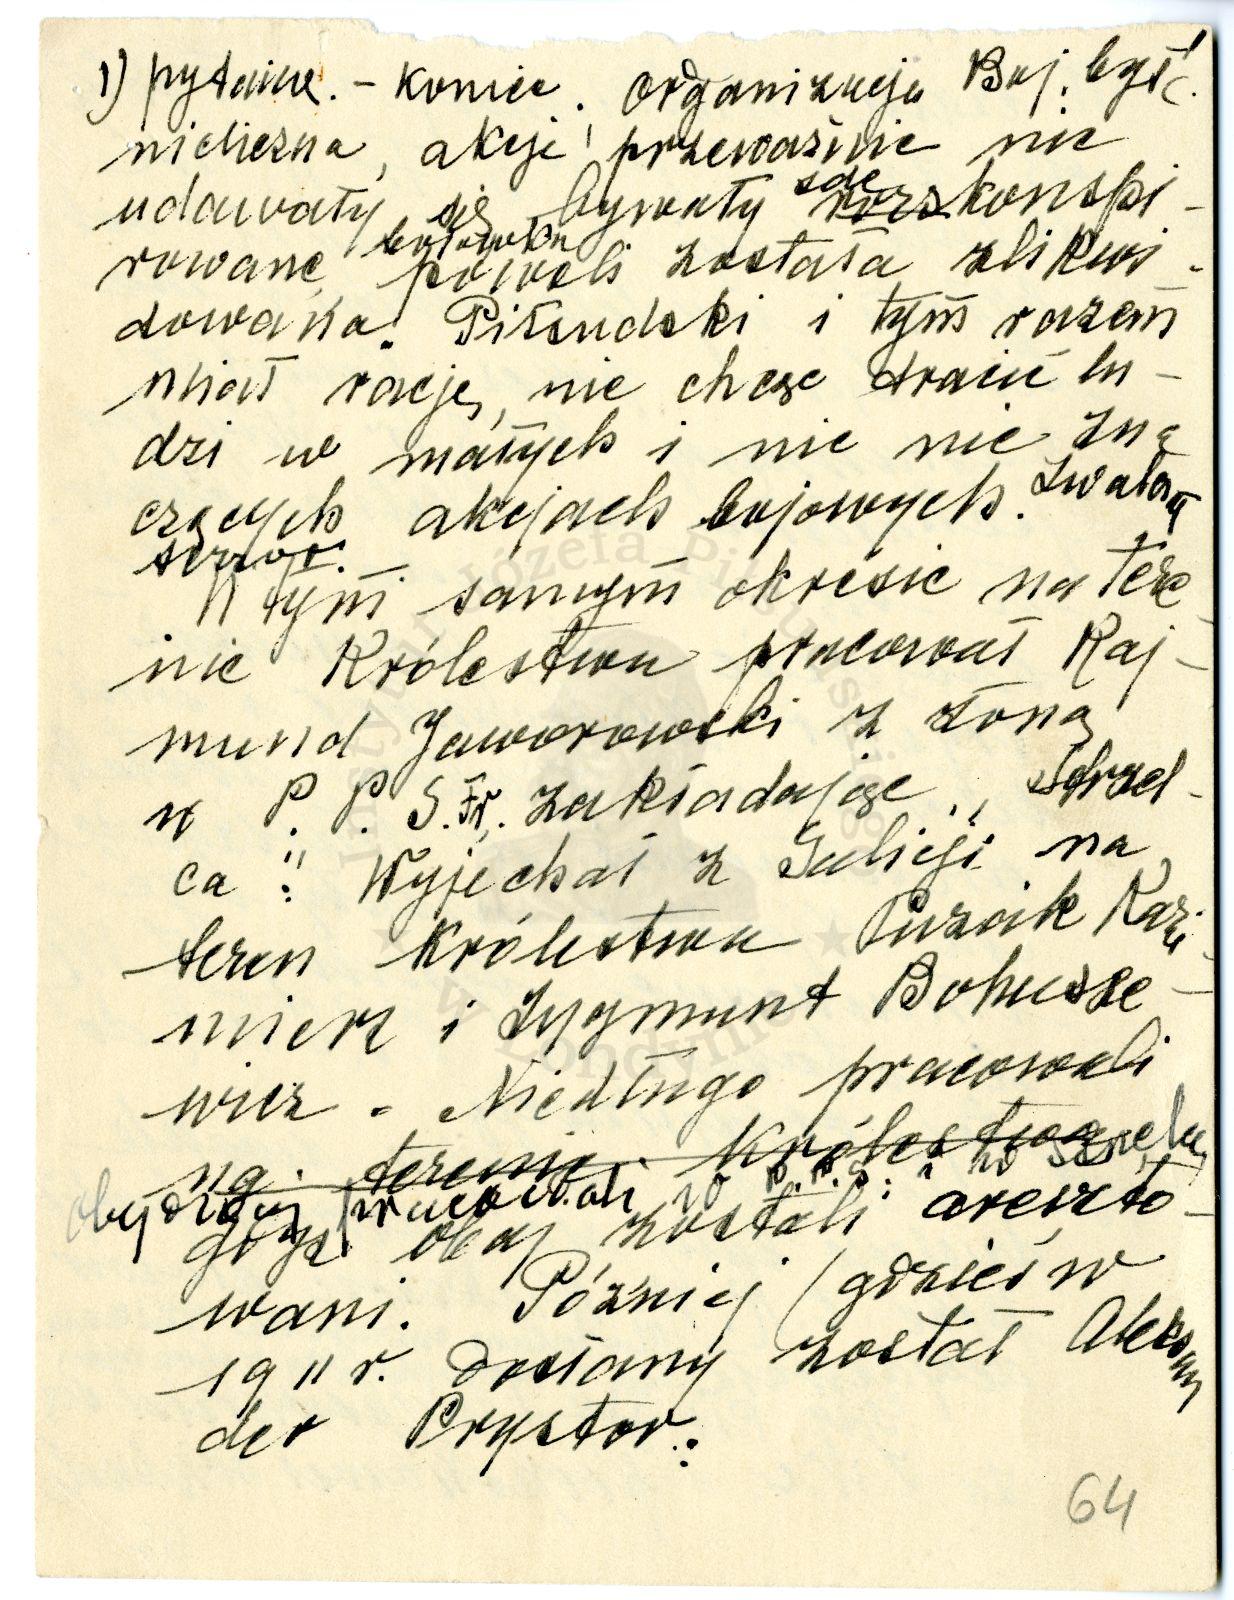 1) pytanie. - koniec. Organizacja Boj. była
nieliczna, akcje przeważnie nie
udawały się, bywały rozs kde konspi-
rowane, bojówka powoli została zlikwi-
dowana. Piłsudski i tym razem
miał rację, nie chcąc tracić lu-
dzi w małych i nic nie zna
czących akcjach bojowych. Zwalczał
terror.
W tym samym okresie na tere
nie Królestwa pracował Raj-
mund Jaworowski z żoną
w P. P. S. Fr. zakładając „Strzel-
ca". Wyjechał z Galicji na
teren Królestwa Pużak Kazi-
mierz i Zygmunt Bohusze-
wicz. Niedługo pracowali
na terenie Królestwa
obydwaj pracowali w P.P.S. i w
gdyż obaj zostali areszto-
wani. Później (gdzieś w
1911 r. Dostany został Aleksan
der Prystor.
64
Instytut Józefa Piłsudskiego
w Londynie